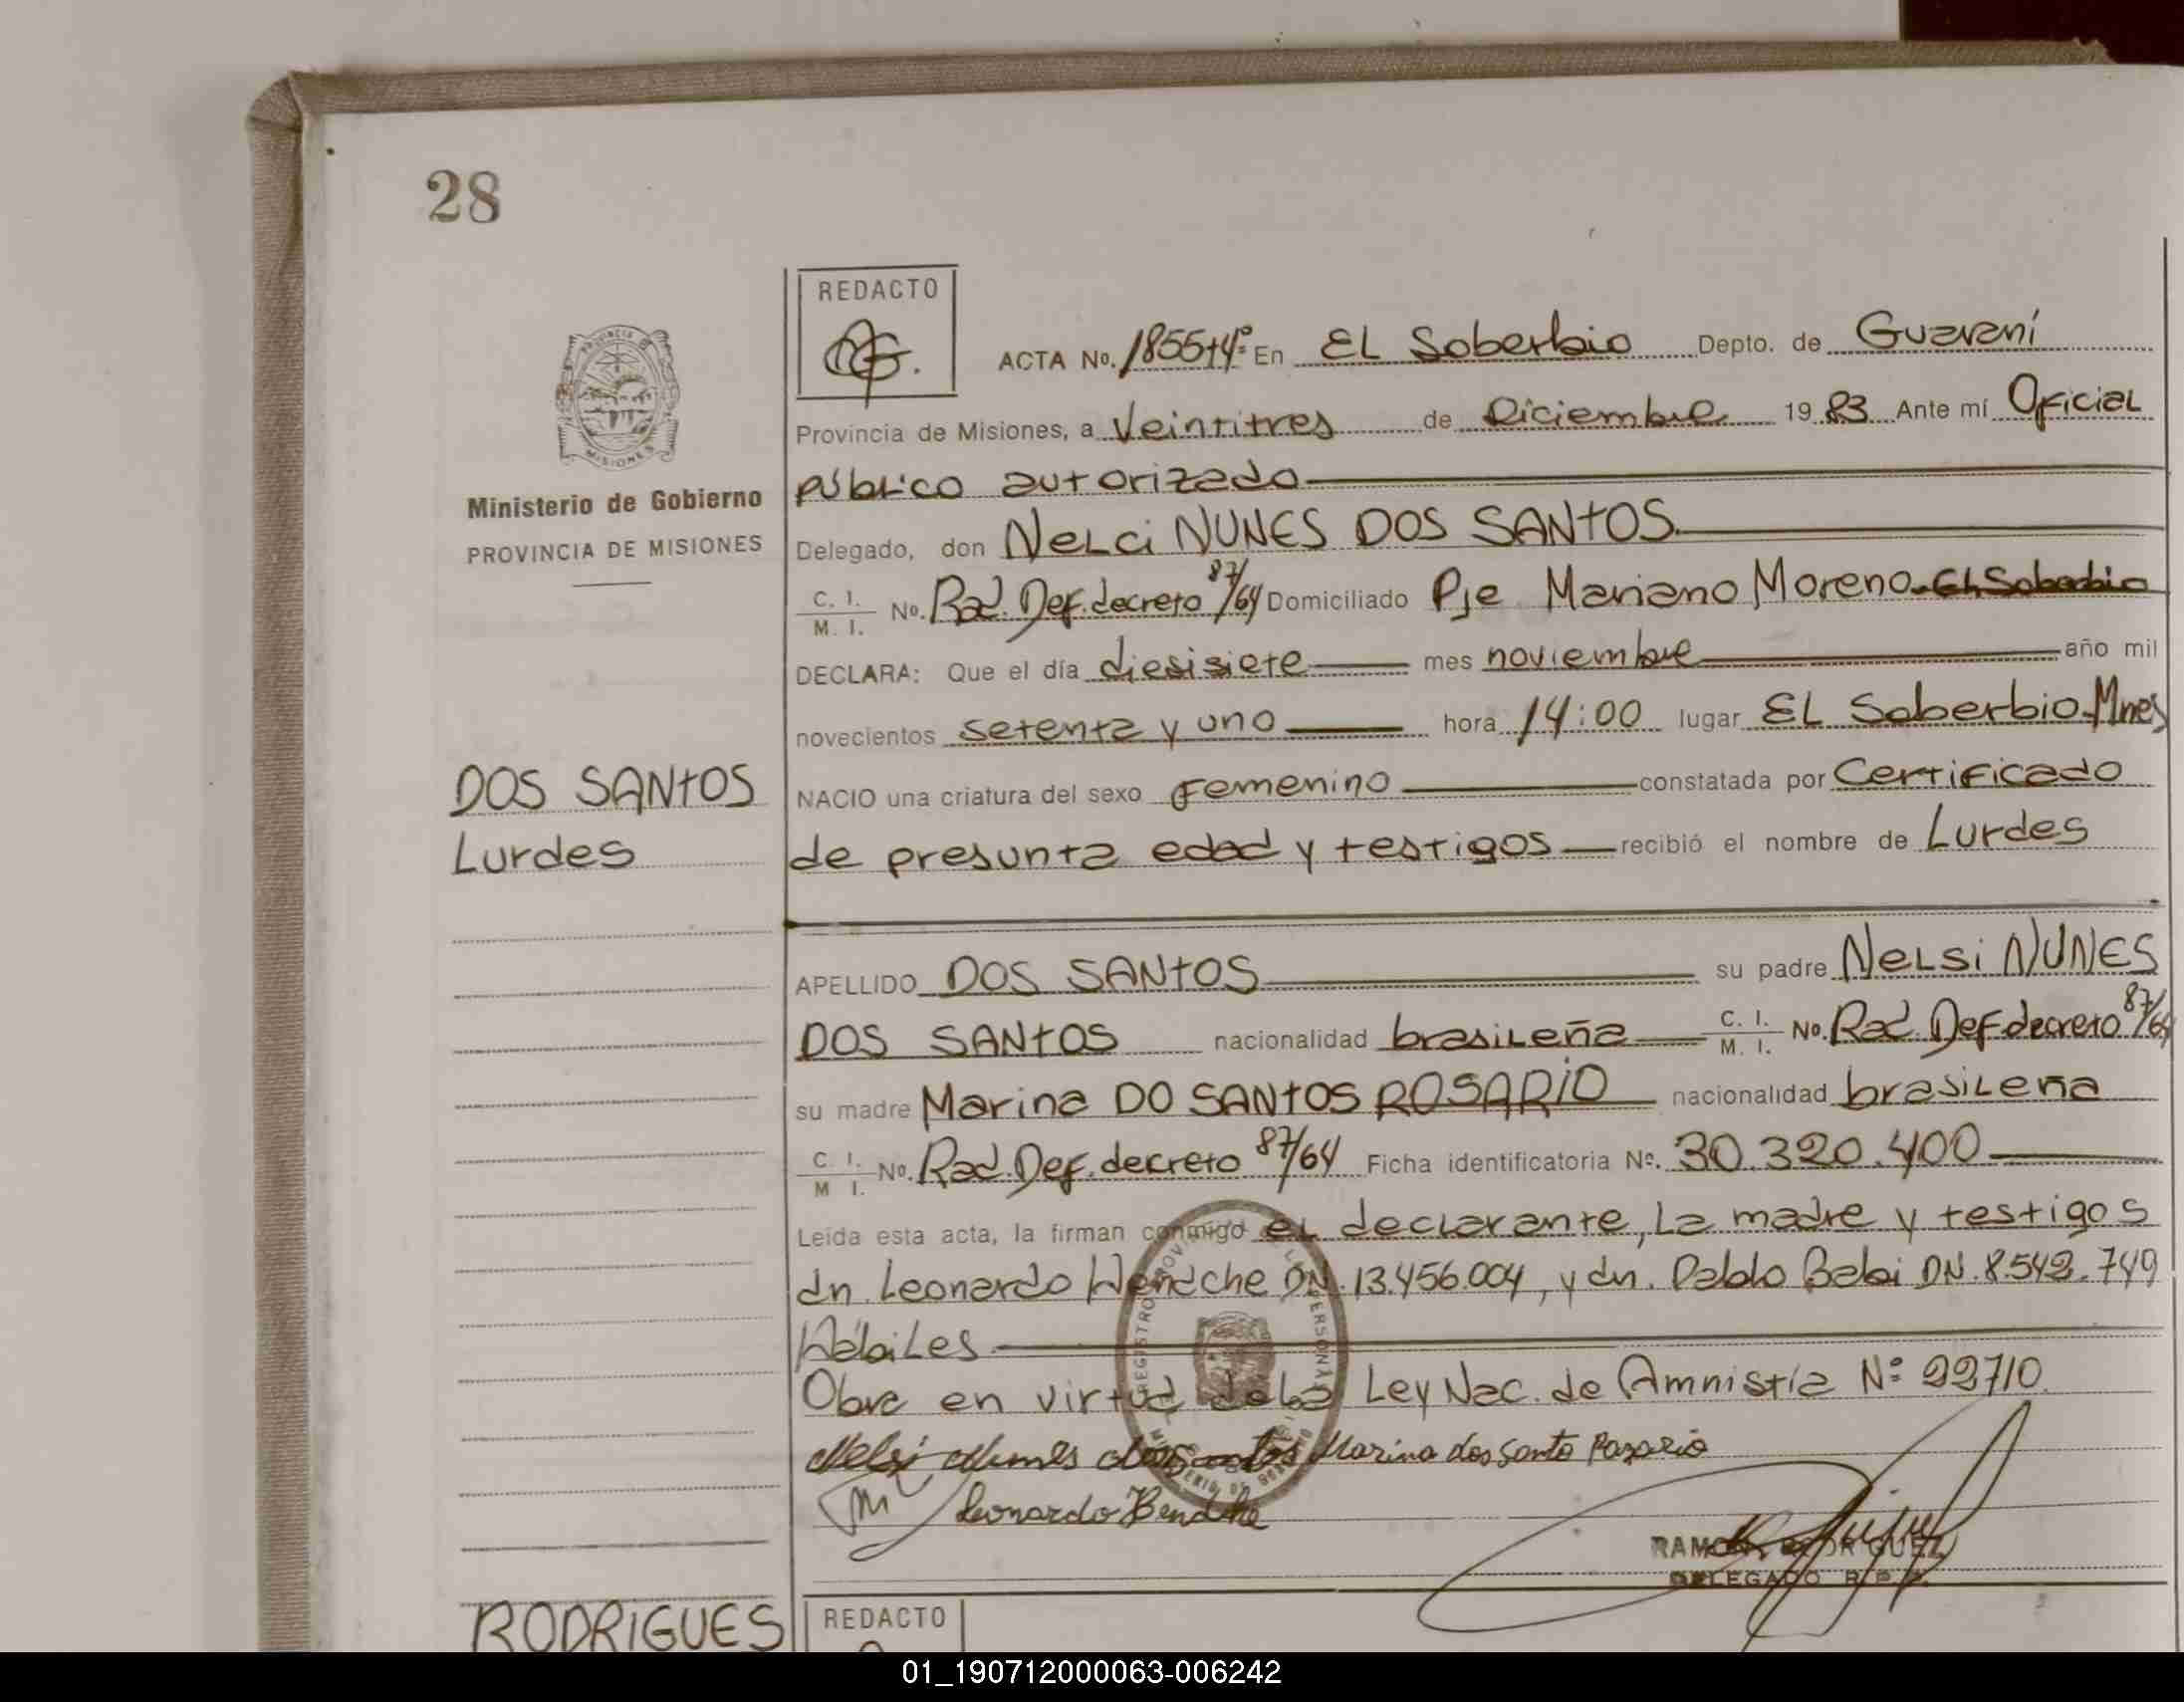 28
REDACTO
ACTA No. 1855t4º En EL Soberbio Depto. de Guaraní
Provincia de Misiones, a Veintitres de Diciembre 1983 Ante mí Oficial
público autorizado
Ministerio de Gobierno
PROVINCIA DE MISIONES
Delegado, don Nelci NUNES DOS SANTOS
C. I. M. I. No. Rad. Def. decreto 87/64 Domiciliado Pje Mariano Moreno-El Soberbio
DECLARA: Que el día diesisiete mes noviembre año mil
novecientos setenta y uno hora 14:00 lugar EL Soberbio-Mnes
DOS SANTOS
Lurdes
NACIO una criatura del sexo Femenino constatada por Certificado
de presunta edad y testigos recibió el nombre de Lurdes
APELLIDO DOS SANTOS su padre Nelsi NUNES
DOS SANTOS nacionalidad brasileña C. I. M. I. No. Rad. Def. decreto 87/64
su madre Marina DO SANTOS ROSARIO nacionalidad brasileña
C. I. M I. No. Rad. Def. decreto 87/64 Ficha identificatoria Nº. 30.320.400
Leída esta acta, la firman conmigo el declarante, la madre y testigos
dn. Leonardo Wendche DN. 13.456.004, y dn. Pablo Babi DN. 8.542.749
Hábiles
Obra en virtud de la Ley Nac. de Amnistía Nº 22710.
Nelsi Nunes dos santos Marina dos Santo Rosario
Leonardo Bendche
RAMON RODRIGUEZ
DELEGADO R. P.
RODRIGUES
REDACTO
01_190712000063-006242